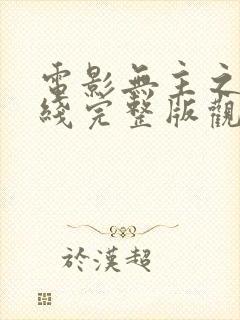 電影無主之
綫完整版觀
於漢超